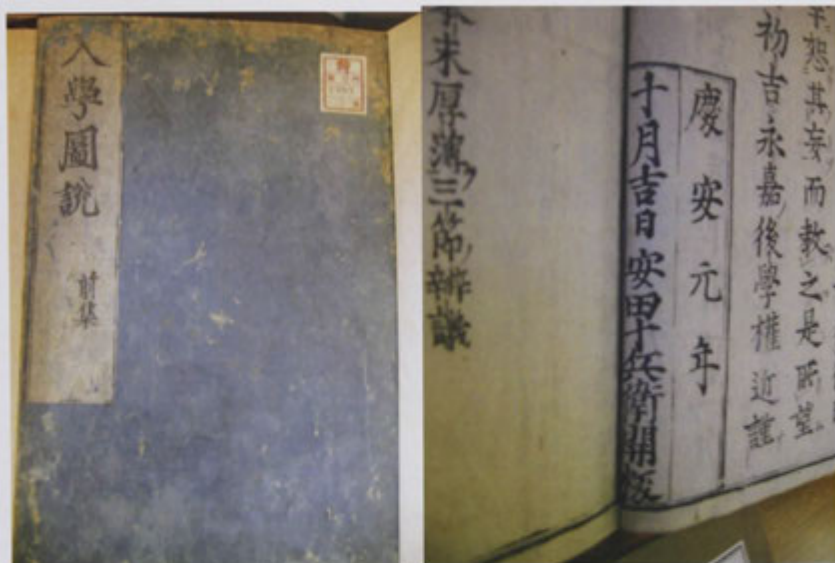 入學圖說
前集
幸恕其妄而教之是所望
初吉永嘉後學權近謹
慶安元年
十月吉日安田十兵衛開板
本末厚薄三節辨議